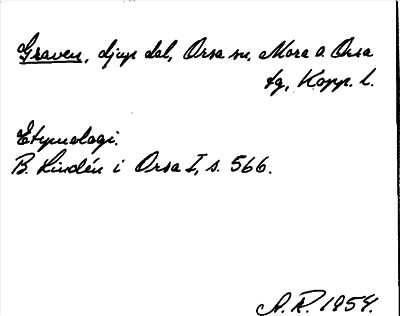 Graven, djup dal, Orsa sn, Mora o. Orsa
tg, Kopp. l.
Etymologi.
B. Lindén i Orsa I, s. 566.
A. R. 1954.